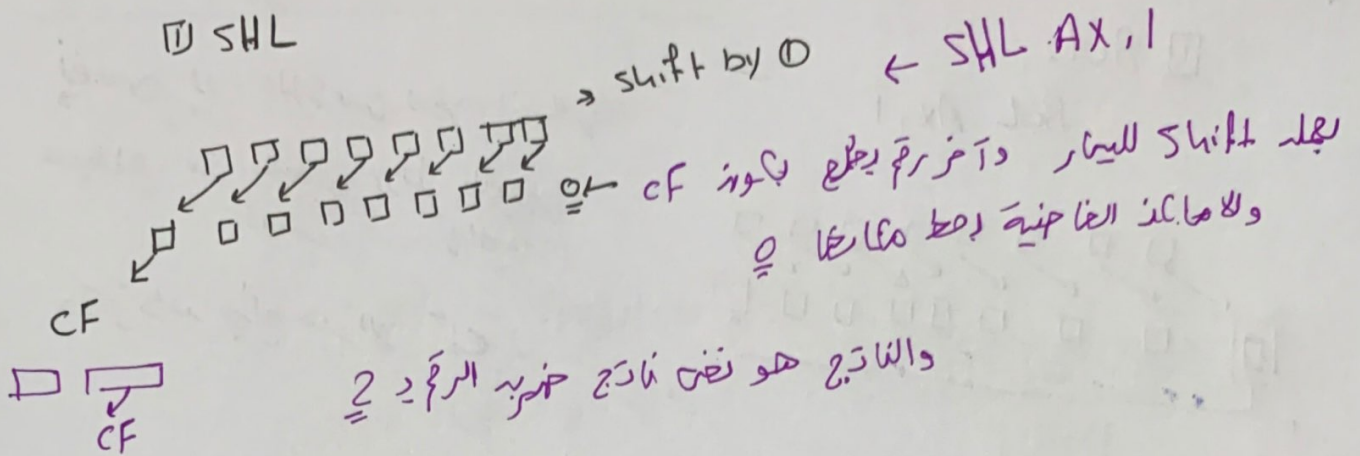 ① SHL
→ shift by ① ← SHL AX, 1
بعمله shift لليسار وآخر رقم يطلع بكون CF
0
والاماكن الفاضية بحط مكانها 0
CF
CF
والناتج هو نفس ناتج ضرب الرقم بـ 2